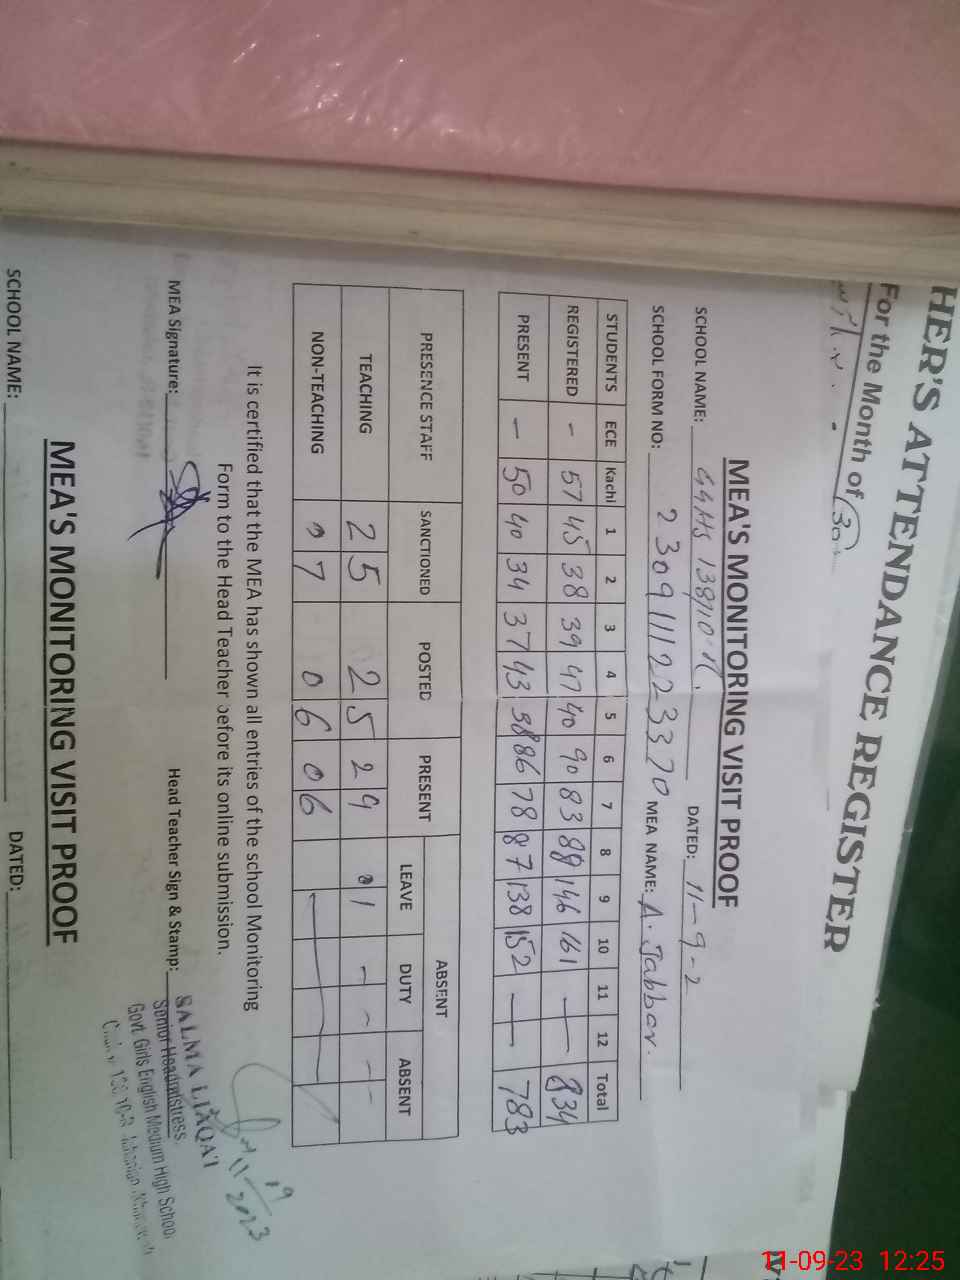 HER'S ATTENDANCE REGISTER
For the Month of 30
MEA'S MONITORING VISIT PROOF
SCHOOL NAME: GGHS 138/10.R. DATED: 11-9-2
SCHOOL FORM NO: 2309111122-3370 MEA NAME: A. Jabbar.
STUDENTS ECE Kachi 1 2 3 4 5 6 7 8 9 10 11 12 Total
REGISTERED - 57 45 38 39 47 40 90 83 88 146 161 — 834
PRESENT - 50 40 34 37 43 38 86 78 87 138 152 — 783
PRESENCE STAFF SANCTIONED POSTED PRESENT ABSENT
LEAVE DUTY ABSENT
TEACHING 25 25 29 01 - - - -
NON-TEACHING 07 06 06
It is certified that the MEA has shown all entries of the school Monitoring
Form to the Head Teacher before its online submission.
MEA Signature: Head Teacher Sign & Stamp:
11/19/2023
SALMA LIAQAT
Senior Headmistress,
Govt. Girls English Medium High School
MEA'S MONITORING VISIT PROOF
SCHOOL NAME: DATED:
11-09-23 12:25